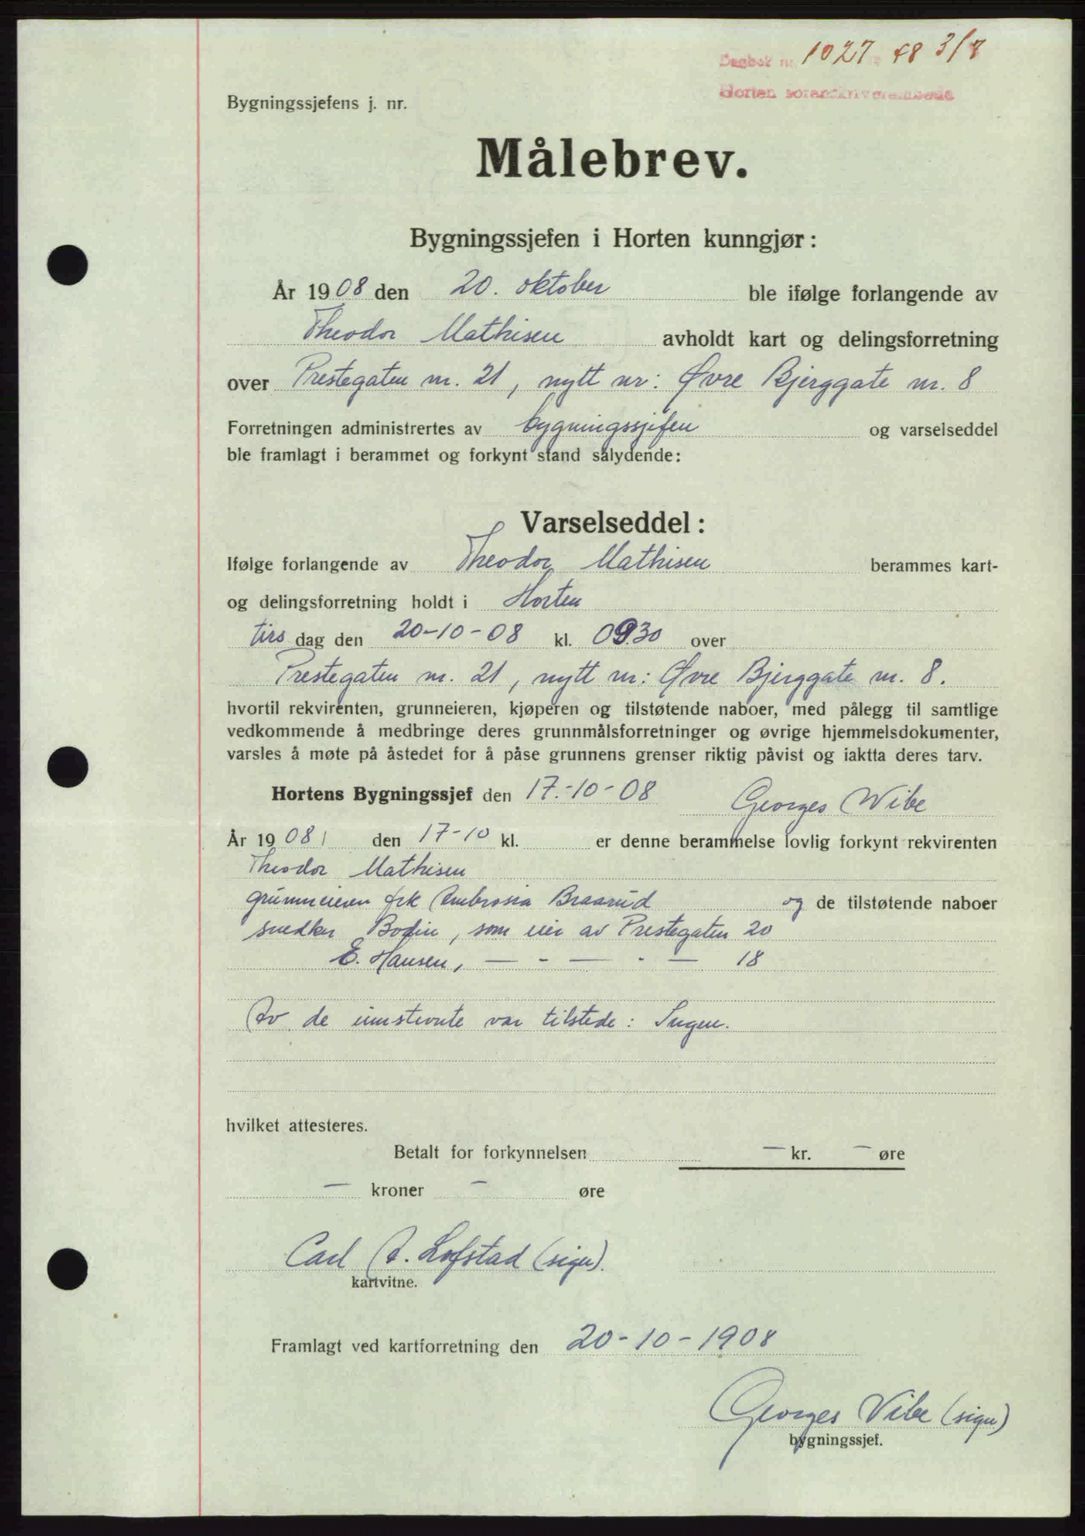 Dagbok nr. 1027 48 3/7
Horten sorenskriverembede
Bygningssjefens j. nr.
Målebrev.
Bygningssjefen i Horten kunngjør:
År 1908 den 20. oktober ble ifølge forlangende av
Theodor Mathisen avholdt kart og delingsforretning
over Prestegaten nr. 21, nytt nr: Øvre Bjerggate nr. 8
Forretningen administrertes av bygningssjefen og varselseddel
ble framlagt i berammet og forkynt stand sålydende:
Varselseddel:
Ifølge forlangende av Theodor Mathisen berammes kart-
og delingsforretning holdt i Horten
tirsdag den 20-10-08 kl. 0930 over
Prestegaten nr. 21, nytt nr: Øvre Bjerggate nr. 8.
hvortil rekvirenten, grunneieren, kjøperen og tilstøtende naboer, med pålegg til samtlige
vedkommende å medbringe deres grunnmålsforretninger og øvrige hjemmelsdokumenter,
varsles å møte på åstedet for å påse grunnens grenser riktig påvist og iaktta deres tarv.
Hortens Bygningssjef den 17.-10-08 Georges Wibe
År 1908 den 17-10 kl. er denne berammelse lovlig forkynt rekvirenten
Theodor Mathisen
grunneieren frk Ambrosia Braarud og de tilstøtende naboer
snedker Bodin, som eier av Prestegaten 20
E. Hansen, — - — - — 18
Av de innstevnte var tilstede: Ingen.
hvilket attesteres.
Betalt for forkynnelsen — kr. — øre
— kroner — øre
Carl A. Lofstad (sign).
kartvitne.
Framlagt ved kartforretning den 20-10-1908
Georges Vibe (sign)
bygningssjef.